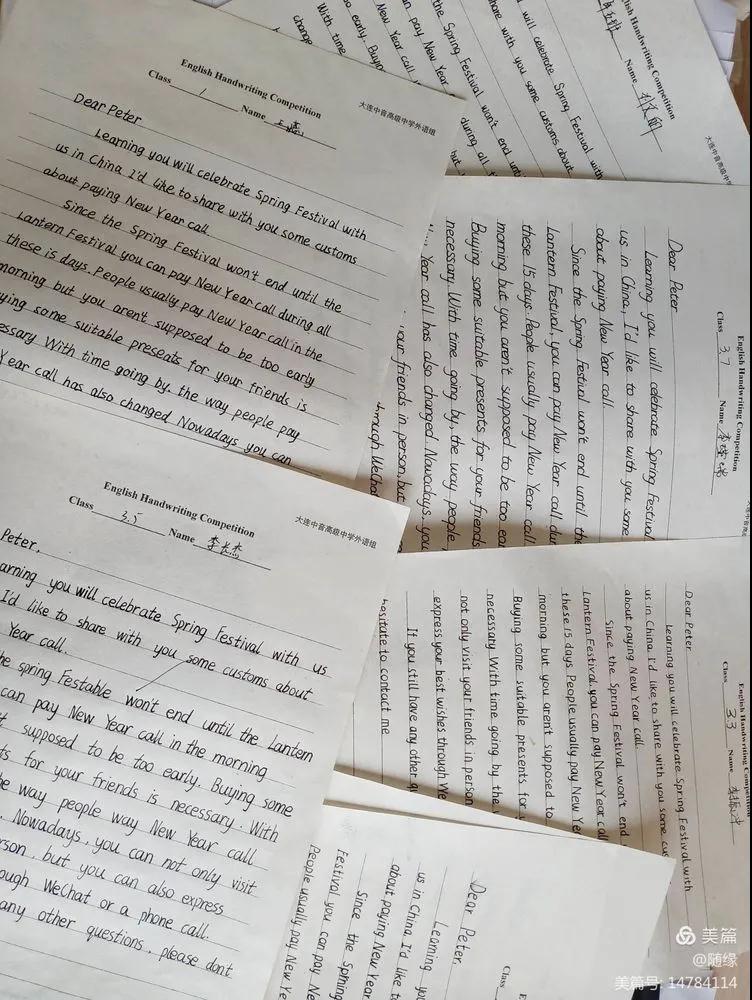 English Handwriting Competition
Class 1 Name
大连中音高级中学外语组
Dear Peter
Learning you will celebrate Spring Festival with
us in China I'd like to share with you some customs
about paying New Year call
Since the Spring Festival won't end until the
Lantern Festival you can pay New Year call during all
these is days. People usually pay New Year call in the
morning but you aren't supposed to be too early
ying some suitable preseats for your friends is
essary With time going by, the way people pay
Year call has also changed Nowadays you can
English Handwriting Competition
Name
大连中音高级中
will celebrate Spring Festival with
share with you some customs about
the Spring Festival won't end unti
English Handwriting Competition
Class 3.7 Name
Dear Peter
Learning you will celebrate Spring Festival
us in China, I'd like to share with you some
about paying New Year call.
Since the Spring Festival won't end until the
Lantern Festival you can pay New Year call du
these 15 days. People usually pay New Year call
morning but you aren't supposed to be too ear
Buying some suitable presents for your friends
necessary. With time going by, the way people
Year call has also changed. Nowadays, you
your friends in person, but
through WeChat
English Handwriting Competition
Class 3.5 Name 李长杰
大连中音高级中学外语组
Peter,
arning you will celebrate Spring Festival with us
I'd like to share with you some customs about
Year call.
he spring Festable won't end until the Lantern
can pay New Year call in the morning
t supposed to be too early. Buying some
ts for your friends is necessary. With
he way people way New Year call
. Nowadays, you can not only visit
rson, but you can also express
ough WeChat or a phone call.
any other questions, please don't
English Handwriting Competition
Class 3.3 Name
Dear Peter
Learning you will celebrate Spring Festival with
us in China. I'd like to share with you some cus
about paying New Year call.
Since the Spring Festival won't end
Lantern Festival, you can pay New Year call
these 15 days People usually pay New Ye
morning but you aren't supposed to
Buying some suitable presents for y
necessary With time going by the
not only visit your friends in person
express your best wishes through We
If you still have any other qu
hesitate to contact me
Class
Dear Peter,
Learning yo
us in China. I'd like t
about paying New Year
Since the Sphing
Festival you can pay Ne
People usually pay New Ye
美篇
@随缘
美篇号: 14784114